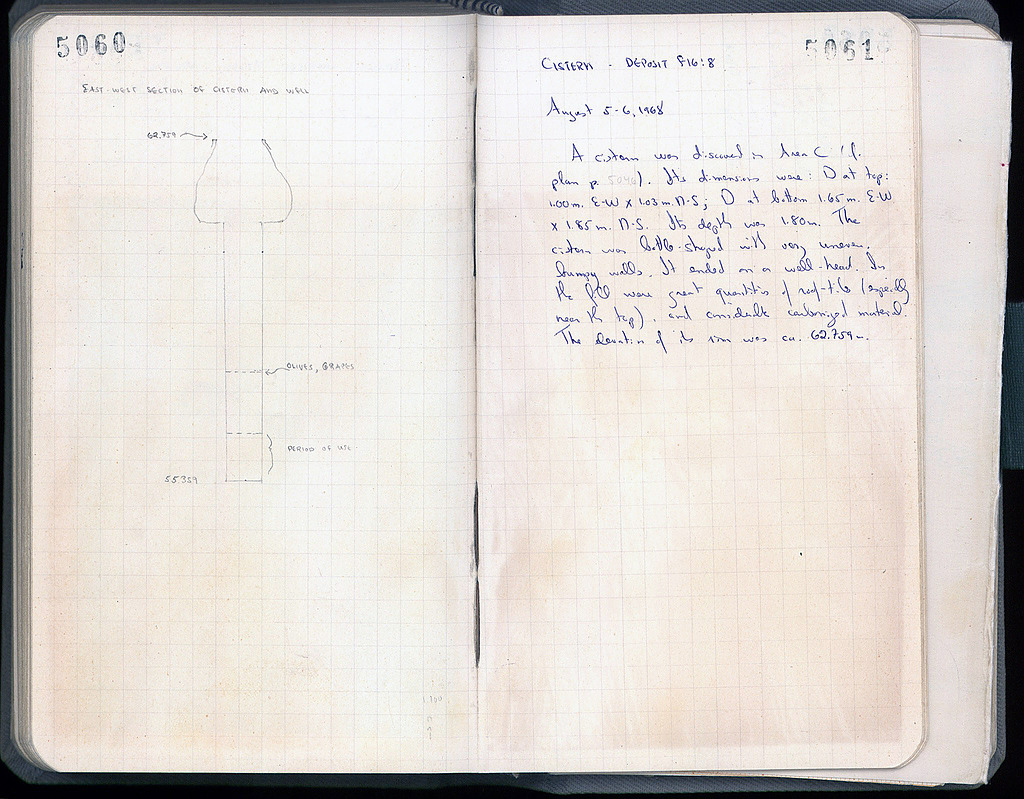 5060
EAST-WEST SECTION OF CISTERN AND WELL
62.759
OLIVES, GRAPES
PERIOD OF USE
55.359
1.100
5061
CISTERN - DEPOSIT F16:8
August 5-6, 1968
A cistern was discovered in Area C (cf.
plan p. 5046). Its dimensions were: D at top:
1.00m. E-W x 1.03m. N-S; D at bottom 1.65m. E-W
x 1.85m. N-S. Its depth was 1.80m. The
cistern was bottle-shaped with very uneven,
bumpy walls. It ended on a well-head. In
the fill were great quantities of roof-tile (especially
near the top), and considerable carbonized material.
The elevation of its rim was ca. 62.759m.